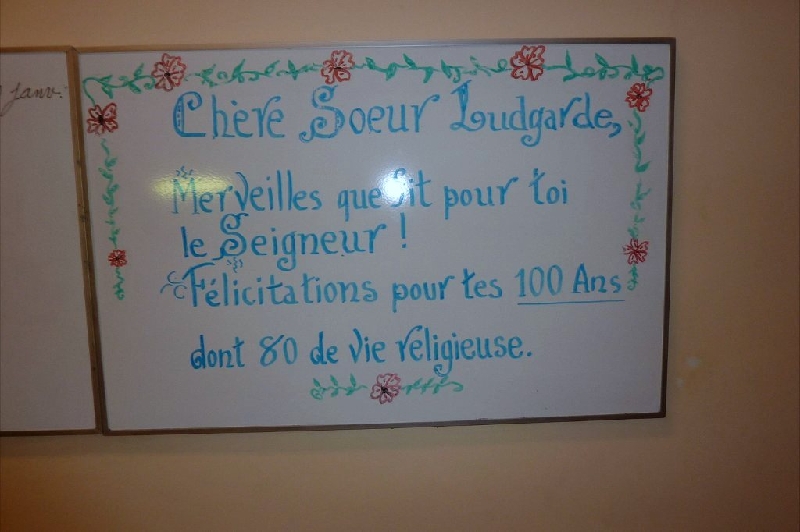 janv.
Chère Soeur Ludgarde,
Merveilles que fit pour toi
le Seigneur !
Félicitations pour tes 100 Ans
dont 80 de vie réligieuse.